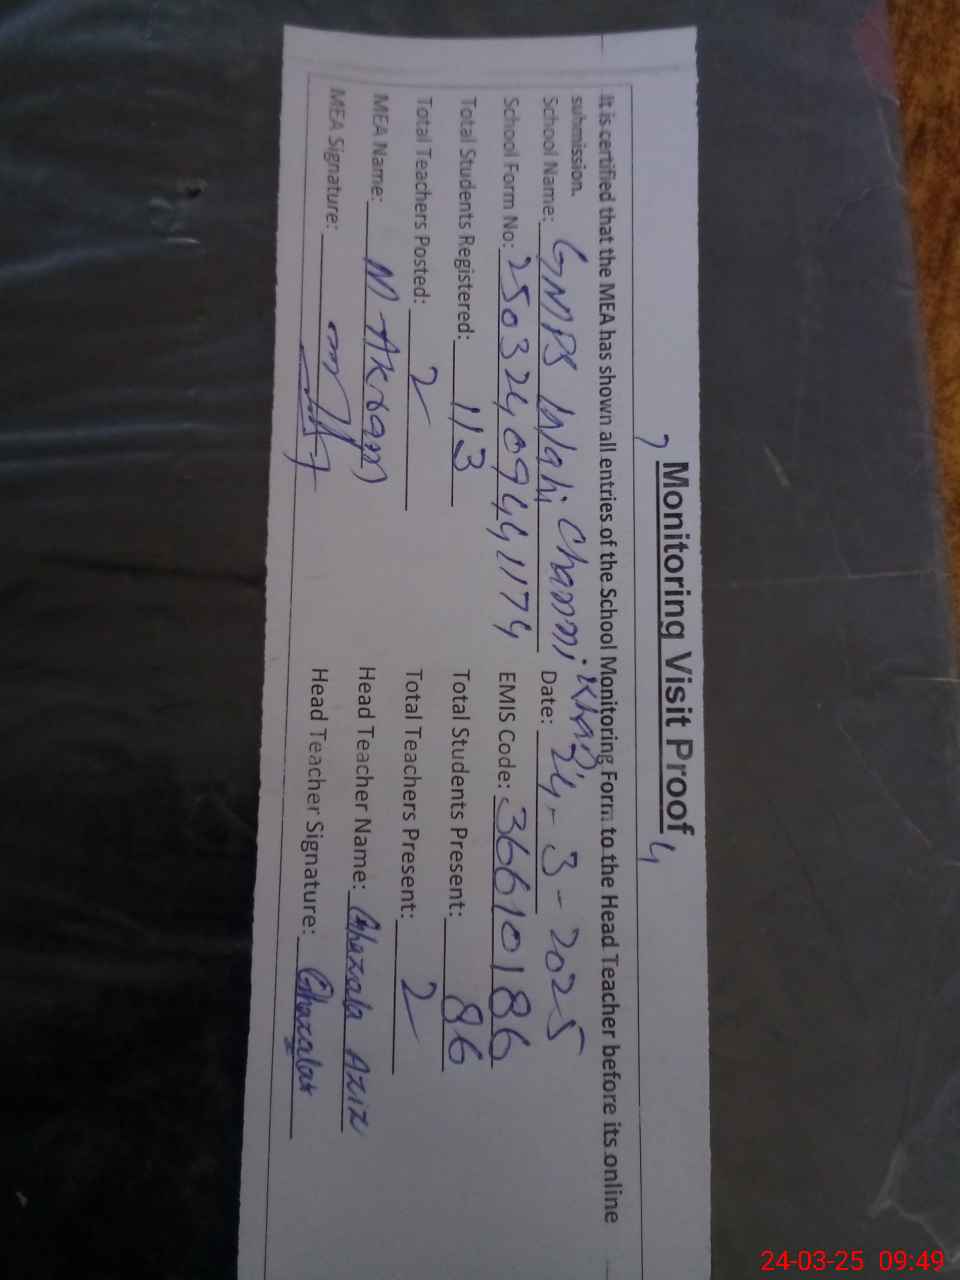 Monitoring Visit Proof
It is certified that the MEA has shown all entries of the School Monitoring Form to the Head Teacher before its online
submission.
School Name: GMPS Wahi Channi Khan Date: 24-3-2025
School Form No: 25032409441174 EMIS Code: 36610186
Total Students Registered: 113 Total Students Present: 86
Total Teachers Posted: 2 Total Teachers Present: 2
MEA Name: M Akram Head Teacher Name: Ghazala Aziz
MEA Signature: Head Teacher Signature: Ghazala
24-03-25 09:49